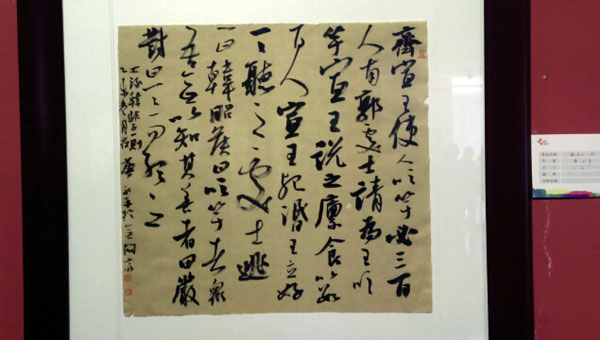 齊宣王使人吹竽必三百
人南郭處士請為王吹
竽宣王說之廩食以數
百人宣王死湣王立好
一一聽之處士逃
一曰韓昭侯曰吹竽者眾
吾無以知其善者田嚴
對曰一一而聽之
右錄韓非子一則